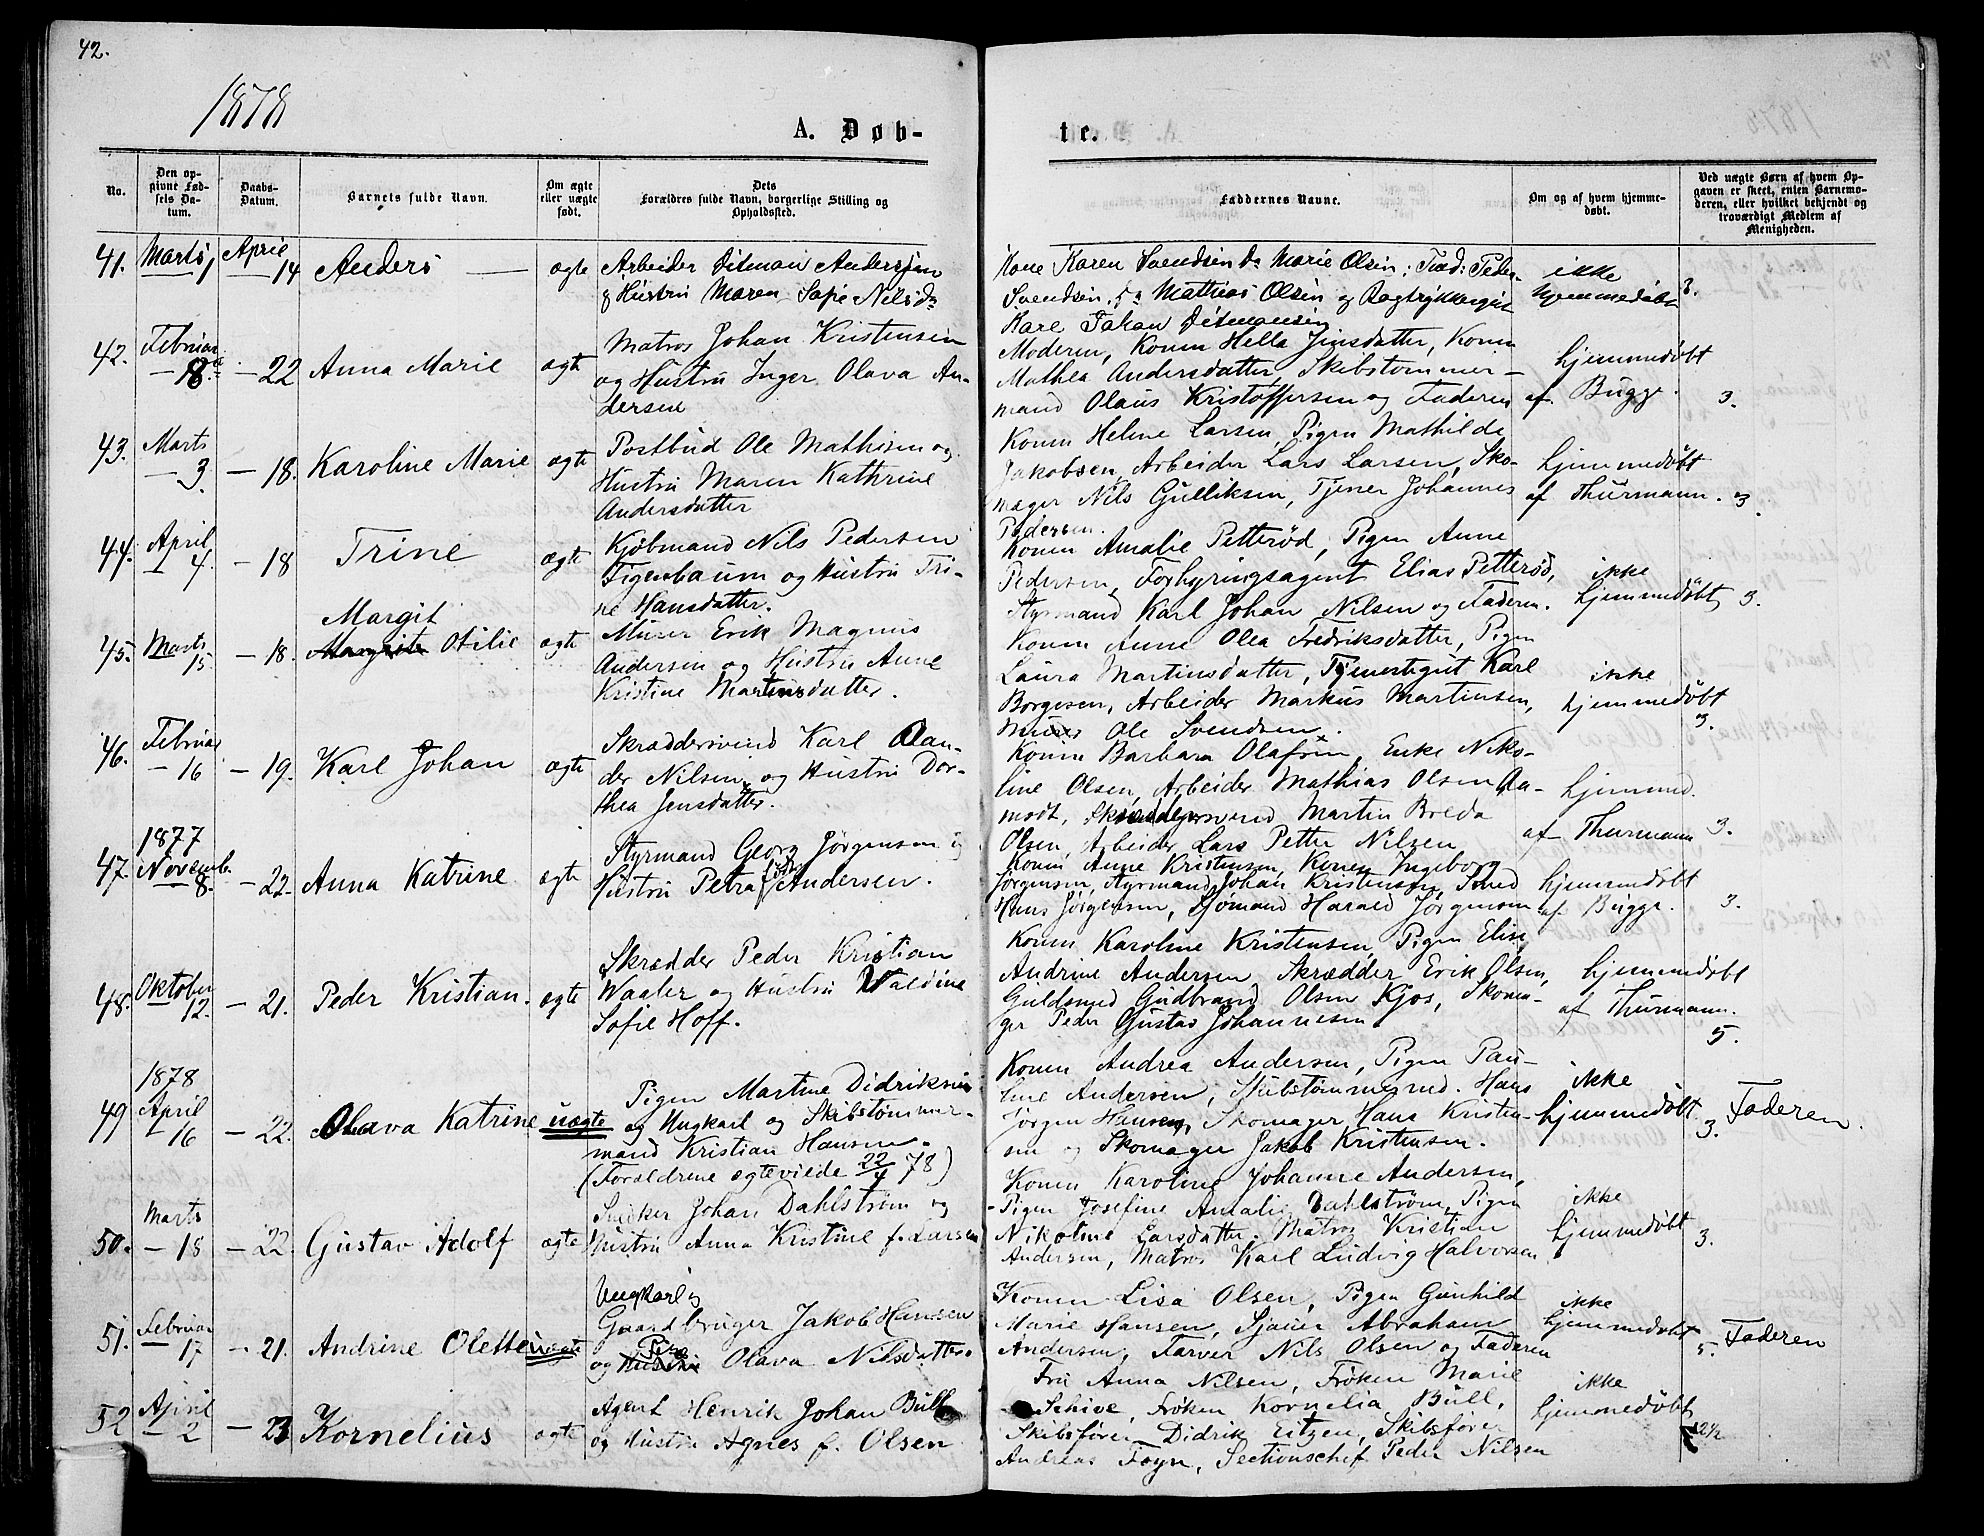 42.
1878
A. Døb-
te.
No.
Den op-
givne Fød-
sels Da-
tum.
Daabs-
Datum.
Barnets fulde Navn.
Om ægte
eller uægte
født.
Dets
Forældres fulde Navn, borgerlige Stilling og
Opholdssted.
Faddernes Navne.
Om og af hvem hjemme-
døbt.
Ved uægte Børn af hvem Op-
gaven er skeet, enten Barnemo-
deren, eller hvilket bekjendt og
troværdigt Medlem af
Menigheden.
41. Marts 1 April 14 Anders ægte
Arbeider Ditman Anderssen
& Hustru Maren Sofie Nilsd.
Kone Karen Svendsen Do Marie Olsen; Fad: Peder
Svendsen, Do Mathias Olsen og
Kare Johan Ditmansen
ikke
hjemmedøbt
3.
42. Februar 18. – 22 Anna Marie ægte
Matros Johan Kristensen
og Hustru Inger Olava An-
dersen
Moderen, Konen Hella Jensdatter, Konen
Mathea Andersdatter, Skibstømmer-
mand Olaus Kristoffersen og Faderen
hjemmedøbt
af Bugge.
3.
43. Marts 3. – 18. Karoline Marie ægte
Postbud Ole Mathisen og
Hustru Maren Kathrine
Andersdatter
Konen Helene Larsen, Pigen Mathilde
Jakobsen, Arbeider Lars Larsen, Sko-
mager Nils Gulliksen, Tjener Johannes
Pedersen.
hjemmedøbt
af Thurmann.
3
44. April 4. – 18 Trine ægte
Kjøbmand Nils Pedersen
Figenbaum og Hustru Tri-
ne Hansdatter.
Konen Amalie Petterød, Pigen Anne
Pedersen, Forhyringsagent Elias Petterød,
Styrmand Karl Johan Nilsen og Faderen.
ikke
hjemmedøbt
3.
Margit
45. Marts 15 – 18. Margrete Otilie ægte
Murer Erik Magnus
Andersen og Hustru Anne
Kristine Martinsdatter.
Konen Anne Olea Fredriksdatter, Pigen
Laura Martinsdatter, Tjenestegut Karl
Borgesen, Arbeider Markus Martinsen,
Murer Ole Svendsen.
ikke
hjemmedøbt
3.
46. Februar 16 – 19. Karl Johan ægte
Skræddersvend Karl Olan-
der Nilsen og Hustru Dor-
thea Jensdatter.
Konen Barbara Olafsen, Enke Niko-
line Olsen, Arbeider Mathias Olsen Aa-
modt, Skræddersvend Martin Breda
Olsen, Arbeider Lars Petter Nilsen
hjemmed.
af Thurmann
3.
1877
47. Novemb. 8. – 22. Anna Katrine ægte
Styrmand Georg Jørgensen og
Hustru Petra født Andersen.
Konen Anne Kristensen, Konen Ingeborg
Jørgensen, Styrmand Johan Kristensen, Smed
Hans Jørgensen, Sjømand Harald Jørgensen
hjemmedøbt
af Bugge.
3.
48. Oktober 12. – 21. Peder Kristian. ægte
Skrædder Peder Kristian
Waaler og Hustru Valdine
Sofie Hoff.
Konen Karoline Kristensen, Pigen Elise
Andrine Andersen Skrædder Erik Olsen,
Guldsmed Gudbrand Olsen Kjos, Skoma-
ger Peder Gustav Johannesen
hjemmedøbt
af Thurmann.
5.
1878
49 April 16 – 22. Olava Katrine uægte
Pigen Martine Didriksen
og Ungkarl og Skibstømmer-
mand Kristian Hansen.
(Forældrene ægteviede 22/4 78)
Konen Andrea Andersen, Pigen Pau-
line Andersen, Skibstømmermd. Hans
Jørgen Hansen, Skomager Hans Kristen-
sen og Skomager Jakob Kristensen.
ikke
hjemmedøbt
3.
Faderen.
50. Marts 18 – 22. Gustav Adolf ægte
Snedker Johan Dahlstrøm og
Hustru Anna Kristine f. Larsen
Konen Karoline Johanne Andersen,
Pigen Josefine Amalie Dahlstrøm, Pigen
Nikoline Larsdatter, Matros Kristian
Andersen, Matros Karl Ludvig Halvorsen
ikke
hjemmedøbt
3.
51. Februar 17 – 21. Andrine Olette uægte
Ungkarl og
Gaardbruger Jakob Hansen
og Hustru Pige Olava Nilsdatter.
Konen Lisa Olsen, Pigen Gunhild
Marie Hansen, Sjauer Abraham
Andersen, Farver Nils Olsen og Faderen
ikke
hjemmedøbt
5.
Faderen
52 April 2 – 23 Kornelius ægte
Agent Henrik Johan Bull
og Hustru Agnes f. Olsen
Fru Anna Nilsen, Frøken Marie
Schive, Frøken Kornelia Bull,
Skibsfører Didrik Eitzen, Skibsfører
Andreas Foyn, Sectionschef Peder Nilsen
ikke
hjemmedøbt